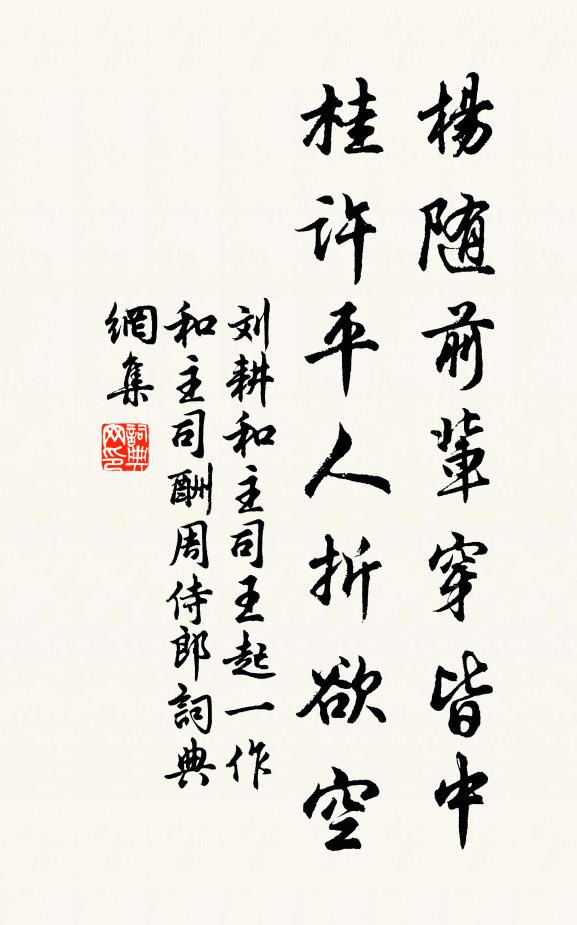 楊随前輩穿皆中
桂许平人折欲空
刘耕和主司王起一作
和主司酬周侍郎詞典
網集
詞典
网印